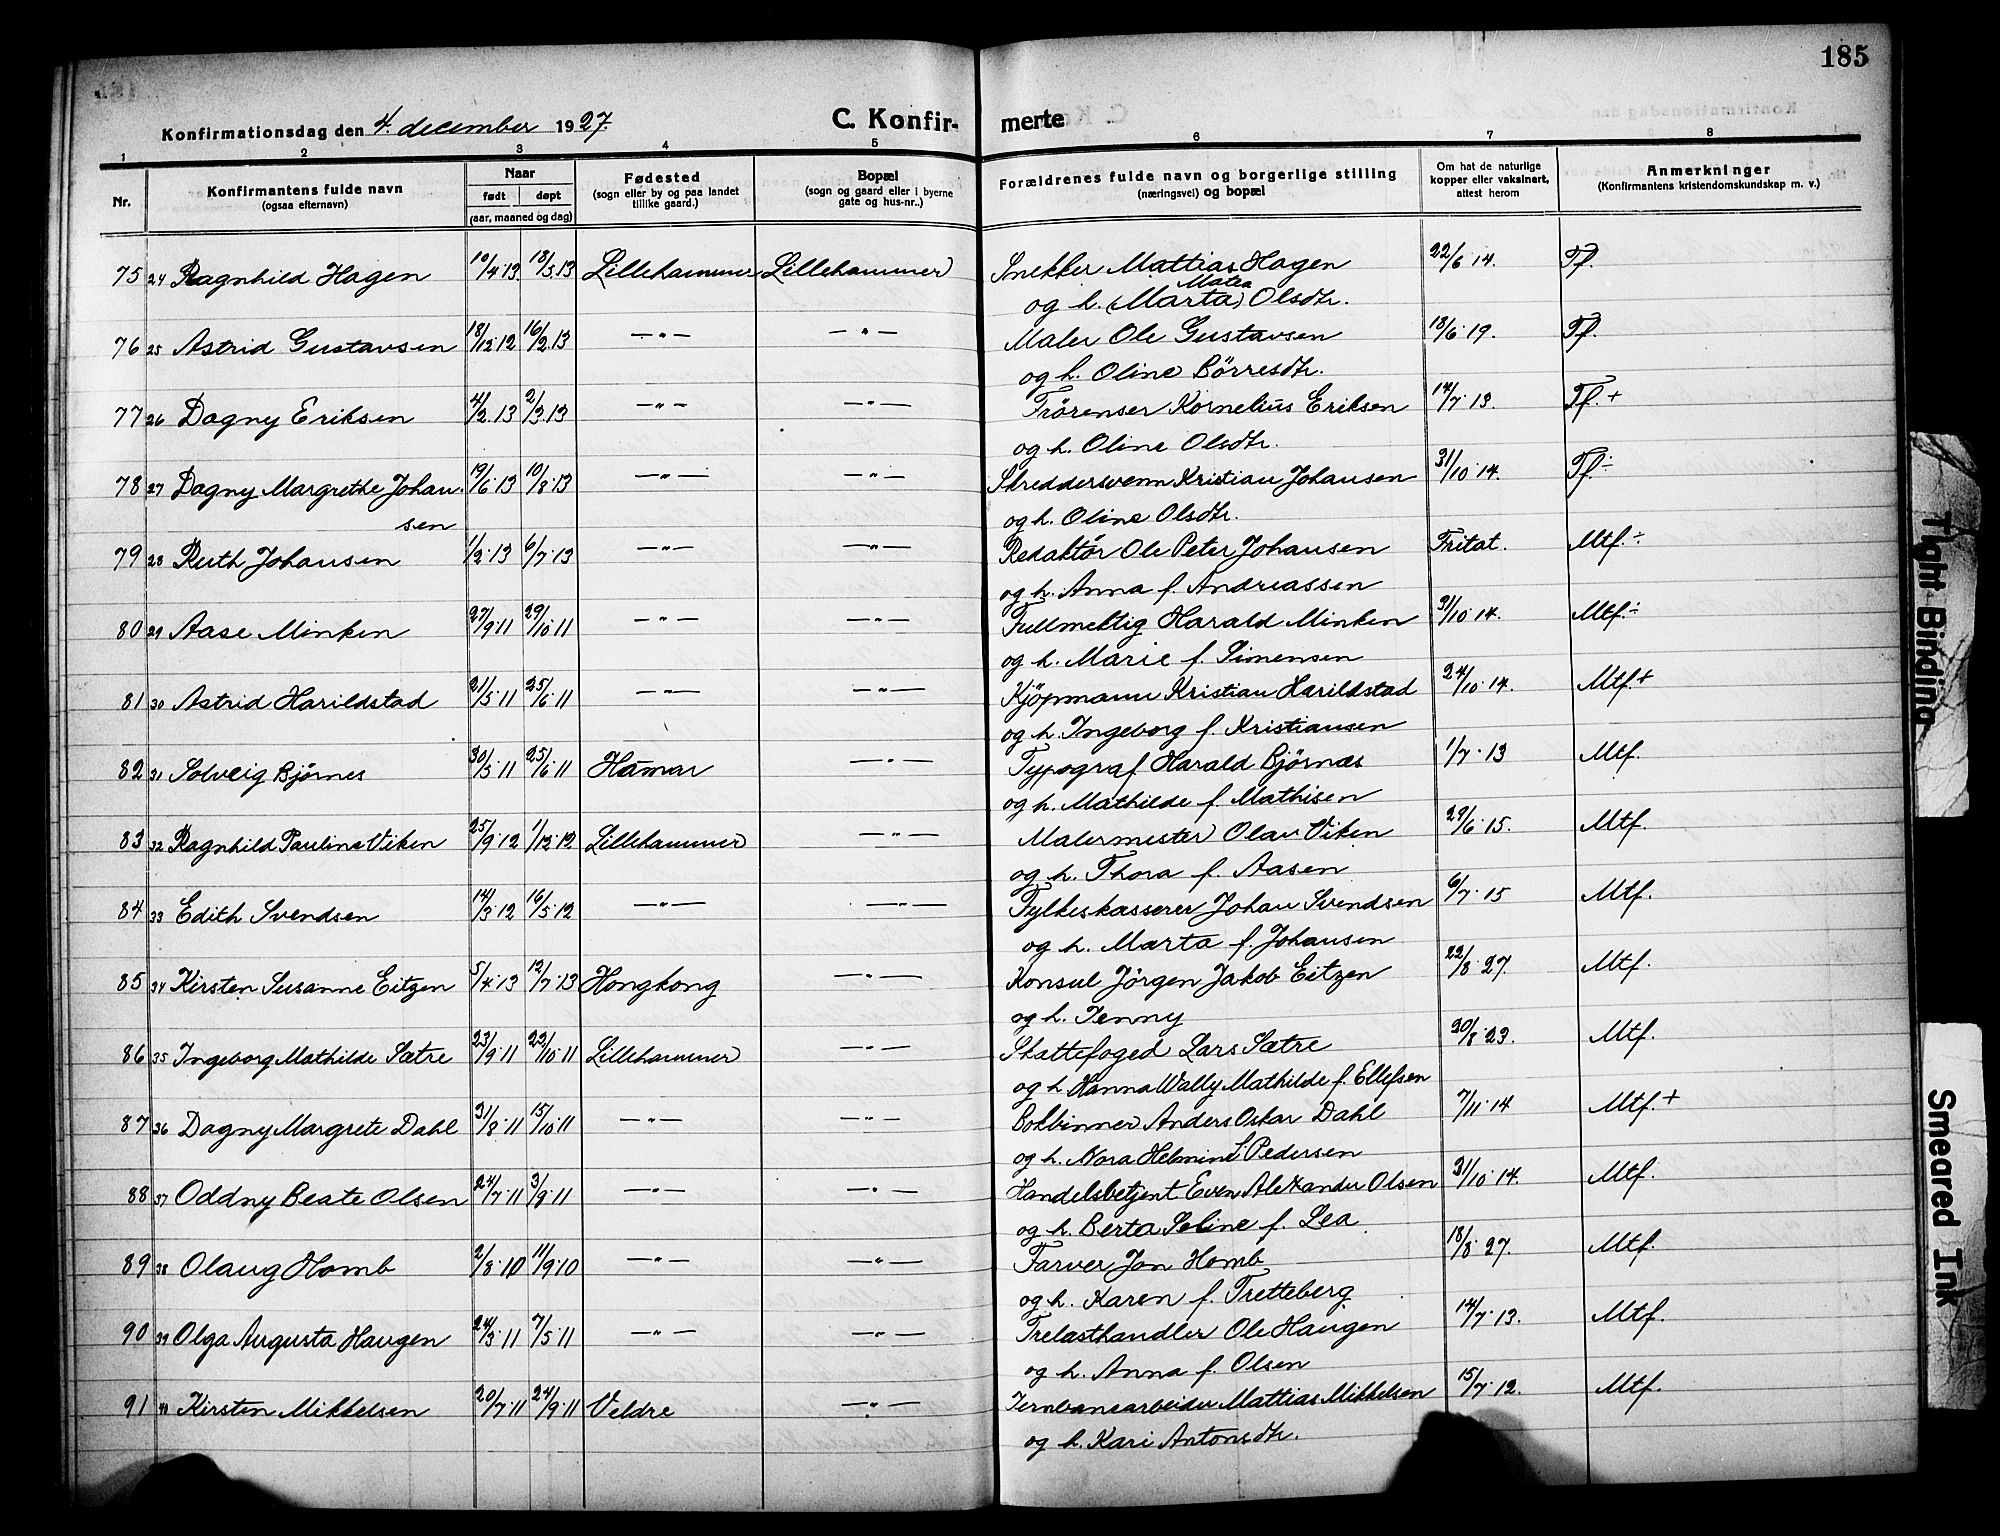 185
Konfirmationsdag den 4. december 1927.
C. Konfir- merte
1 2 3 4 5 6 7 8
Nr.
Konfirmantens fulde navn
(ogsaa efternavn)
Naar
født døpt
(aar, maaned og dag)
Fødested
(sogn eller by og paa landet
tillike gaard.)
Bopæl
(sogn og gaard eller i byerne
gate og hus-nr..)
Forældrenes fulde navn og borgerlige stilling
(næringsvei) og bopæl
Om hat de naturlige
kopper eller vaksinert,
attest herom
Anmerkninger
(Konfirmantens kristendomskundskap m. v.)
75 24 Ragnhild Hagen 10/4 13 18/5 13 Lillehammer Lillehammer Snekker Mattias Hagen 22/6 14. Tf.
Matea
og h. (Marta) Olsdtr.
76 25 Astrid Gustavsen 18/12 12 16/2 13 —„— —„— Maler Ole Gustavsen 18/6 19. Tf.
og h. Oline Börresdtr.
77 26 Dagny Eriksen 4/2 13 2/3 13 —„— —„— Kornelius Eriksen 14/7 13. Tf. +
og h. Oline Olsdtr.
78 27 Dagny Margrethe Johan- 19/6 13 10/8 13 —„— —„— Skreddersvenn Kristian Johansen 31/10 14. Tf. ÷
sen
og h. Oline Olsdtr.
79 28 Ruth Johansen 1/2 13 6/7 13 —„— —„— Redaktör Ole Peter Johansen Fritat. Mtf. ÷
og h. Anna f. Andreassen
80 29 Aase Minken 27/9 11 29/10 11 —„— —„— Fullmektig Harald Minken 31/10 14. Mtf. ÷
og h. Marie f. Simensen
81 30 Astrid Harildstad 21/5 11 25/6 11 —„— —„— Kjöpmann Kristian Harildstad 24/10 14. Mtf. +
og h. Ingeborg f. Kristiansen
82 31 Solveig Bjørnes 30/3 11 25/6 11 Hamar —„— Typograf Harald Bjørnæs 1/7 13 Mtf.
og h. Mathilde f. Mathisen
83 32 Ragnhild Pauline Viken 25/9 12 1/12 12 Lillehammer —„— Malermester Olav Viken 29/6 15. Mtf.
og h. Thora f. Aasen
84 33 Edith Svendsen 14/3 12 16/5 12 —„— —„— Fylkeskasserer Johan Svendsen 6/7 15 Mtf.
og h. Marta f. Johansen
85 34 Kirsten Susanne Eitzen 5/4 13 12/7 13 Hongkong —„— Konsul Jörgen Jakob Eitzen 22/8 27. Mtf.
og h. Jenny
86 35 Ingeborg Mathilde Sætre 23/9 11 22/10 11 Lillehammer —„— Skattefoged Lars Sætre 30/8 23. Mtf.
og h. Hanna Wally Mathilde f. Ellefsen
87 36 Dagny Margrete Dahl 31/8 11 15/10 11 —„— —„— Bokbinner Anders Oskar Dahl 7/11 14 Mtf. +
og h. Nora Helmine f. Pedersen
88 37 Oddny Beate Olsen 24/7 11 3/9 11 —„— —„— Handelsbetjent Even Alexander Olsen 31/10 14. Mtf.
og h. Berta Seline f. Lea
89 38 Olaug Homb 2/8 10 11/9 10 —„— —„— Farver Jon Homb 18/8 27. Mtf.
og h. Karen f. Tretteberg
90 39 Olga Augusta Haugen 24/3 11 7/5 11 —„— —„— Trelasthandler Ole Haugen 14/7 13. Mtf.
og h. Anna f. Olsen
91 40 Kirsten Mikkelsen 20/7 11 24/9 11 Veldre —„— Jernbanearbeider Mattias Mikkelsen 15/7 12. Mtf.
og h. Kari Antonsdtr.
Tight Binding
Smeared Ink